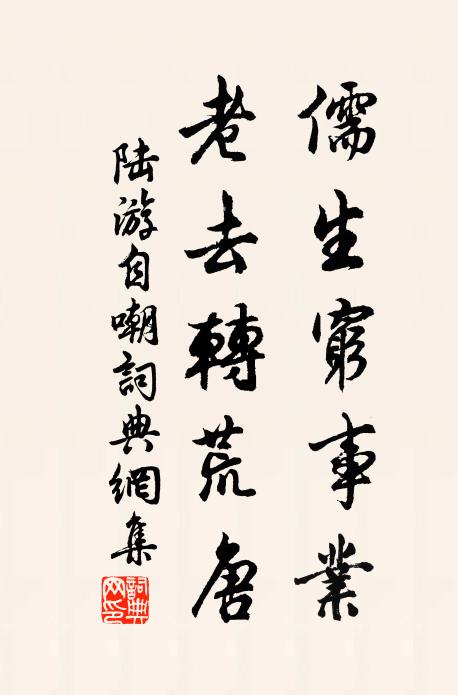 儒生窮事業
老去轉荒唐
陸游自嘲詞典網集
詞典网印